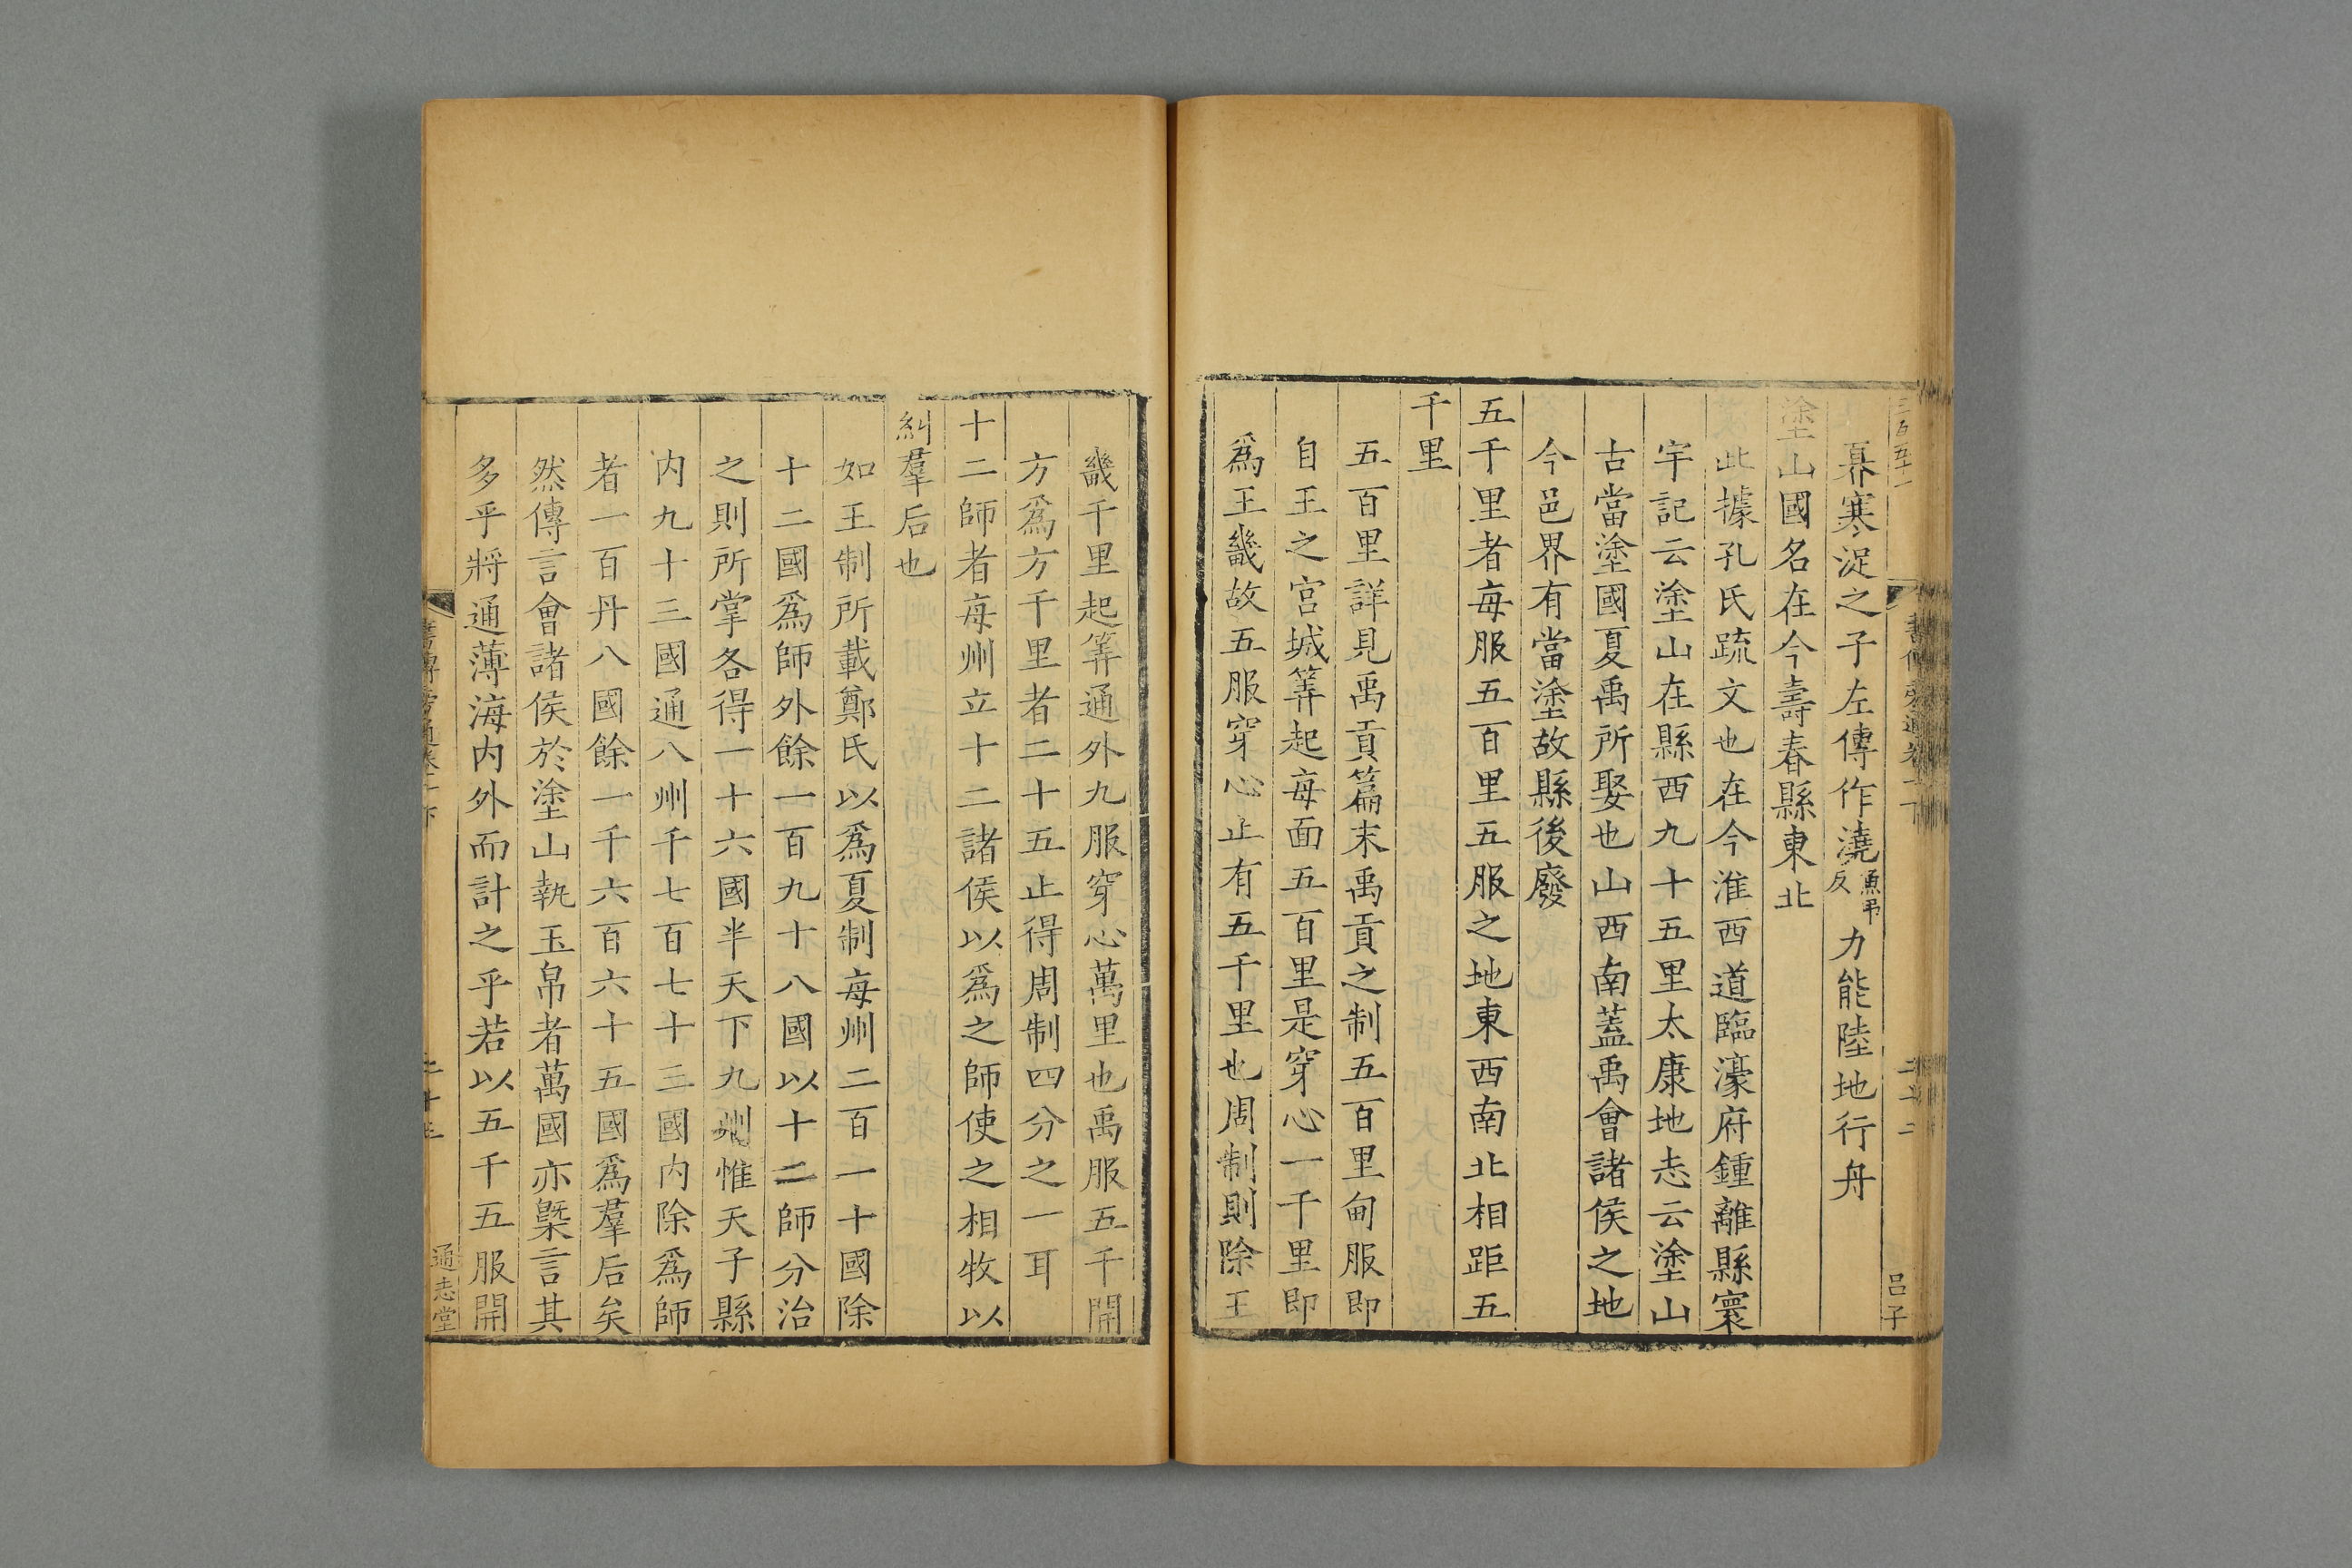 奡寒浞之子左傳作澆魚弔反力能陸地行舟
塗山國名在今壽春縣東北
此據孔氏疏文也在今淮西道臨濠府鍾離縣寰
宇記云塗山在縣西九十五里太康地志云塗山
古當塗國夏禹所娶也山西南蓋禹會諸侯之地
今邑界有當塗故縣後廢
五千里者每服五百里五服之地東西南北相距五
千里
五百里詳見禹貢篇末禹貢之制五百里甸服即
自王之宮城筭起每面五百里是穿心一千里即
爲王畿故五服穿心止有五千里也周制則除王
畿千里起筭通外九服穿心萬里也禹服五千開
方爲方千里者二十五止得周制四分之一耳
十二師者每州立十二諸侯以爲之師使之相牧以
糾羣后也
如王制所載鄭氏以爲夏制每州二百一十國除
十二國爲師外餘一百九十八國以十二師分治
之則所掌各得一十六國半天下九州惟天子縣
内九十三國通八州千七百七十三國内除爲師
者一百丹八國餘一千六百六十五國爲羣后矣
然傳言會諸侯於塗山執玉帛者萬國亦槩言其
多乎將通薄海内外而計之乎若以五千五服開
通志堂
吕子